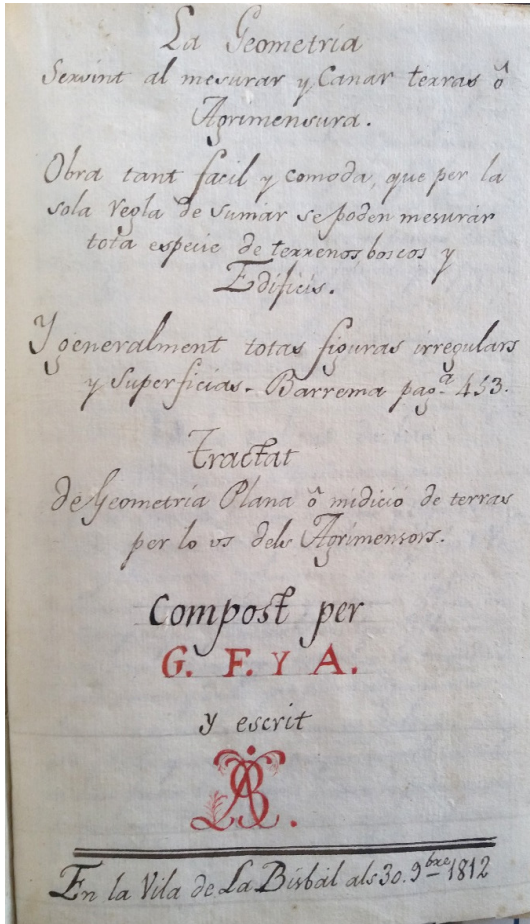 La Geometria
Servint al mesurar y Canar terras ô
Agrimensura.
Obra tant facil y comoda, que per la
sola regla de sumar se poden mesurar
tota especie de terrenos boscos y
Edificis.
Y generalment totas figuras irregulars
y Superficias. Barrema pag.ª 453.
Tractat
de Geometria Plana ô midició de terras
per lo us dels Agrimensors.
Compost per
G. F. Y A.
y escrit
En la Vila de La Bisbal als 30. 9bre 1812